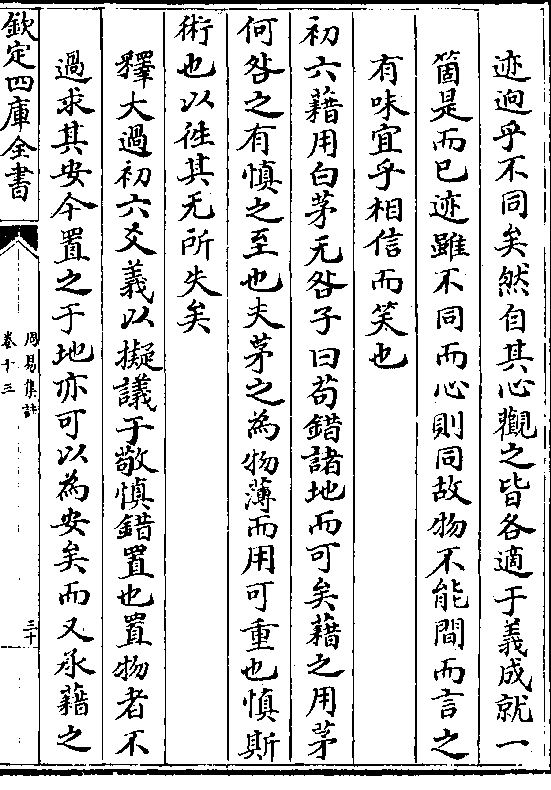 迹迥乎不同矣然自其心觀之皆各適于義成就一
箇是而已迹雖不同而心則同故物不能間而言之
有味宜乎相信而笑也
初六藉用白茅无咎子曰苟錯諸地而可矣藉之用茅
何咎之有慎之至也夫茅之為物薄而用可重也慎斯
術也以徃其无所失矣
釋大過初六爻義以擬議于敬慎錯置也置物者不
過求其安今置之于地亦可以為安矣而又承藉之
欽定四庫全書
周易集註
卷十三
三十